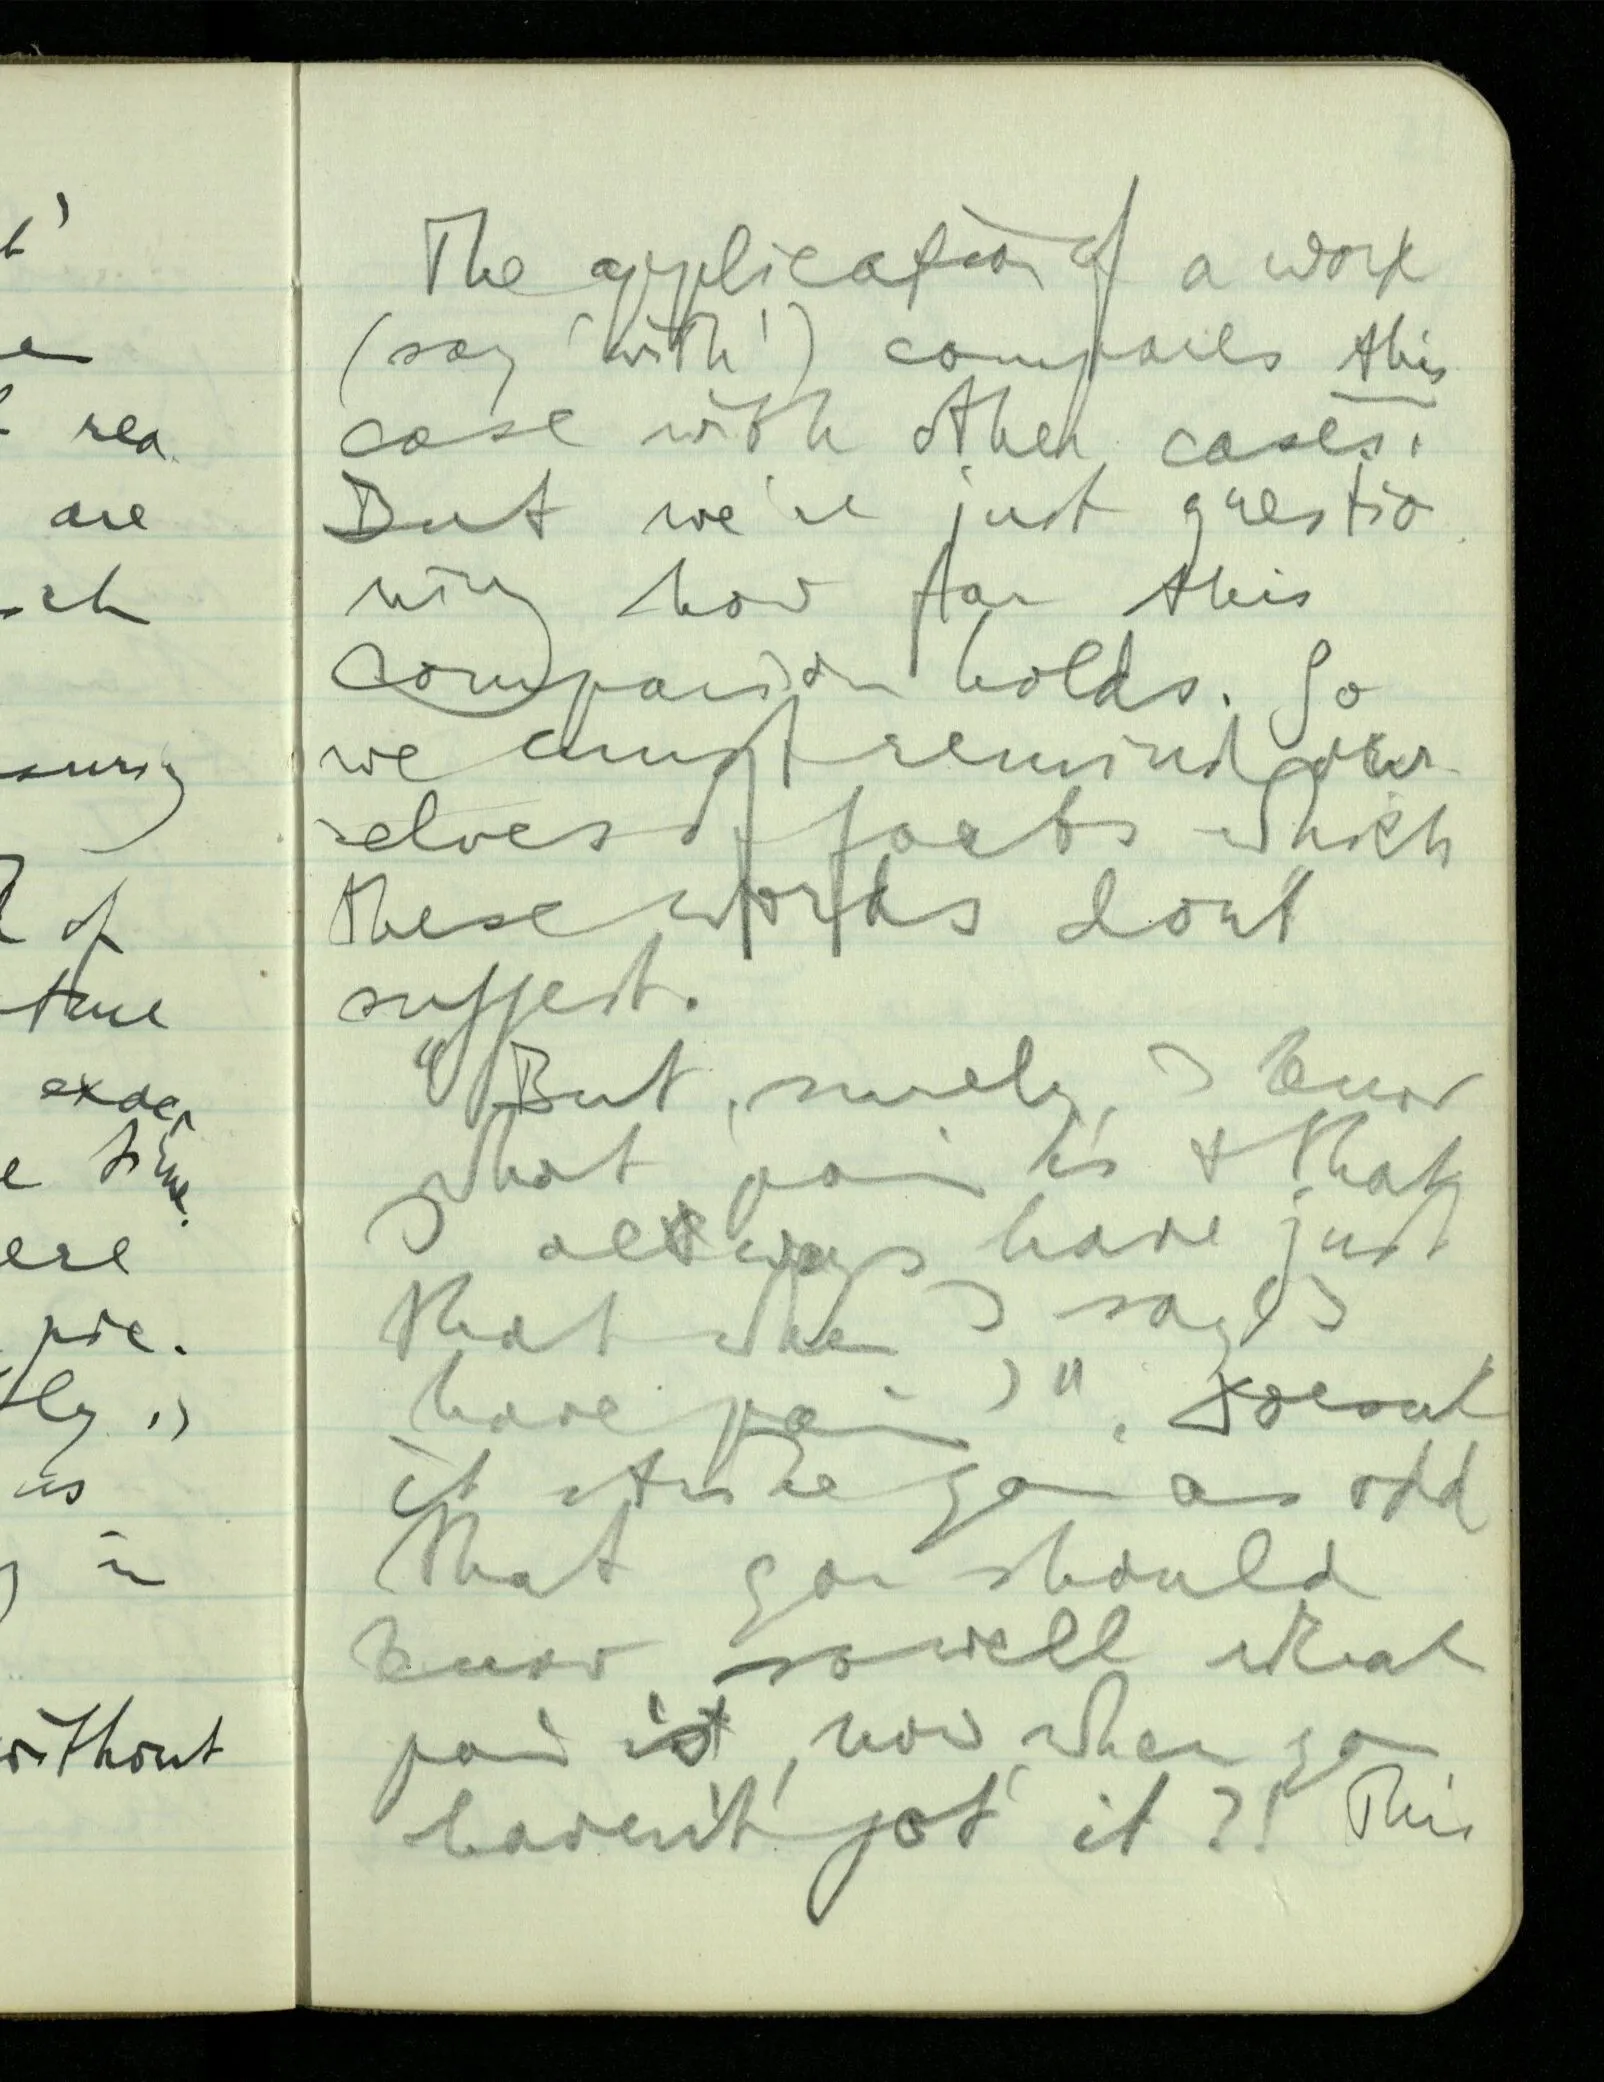 t'
en
rea
are
sch
suring
of
time
exac
e time.
ere
pie.
tly is
us
in
without
The application of a work
(say 'with') compares this
case with other cases.
But we're just questio
ning how far this
comparison holds. So
we must remind our
selves of facts which
these words dont
suggest.
"But, surely, I know
what pain is & that
I always have just
that when I say 'I
have pain'". Doesnt
it strike you as odd
that you should
know so well what
pain is, now when you
haven't got it?! This